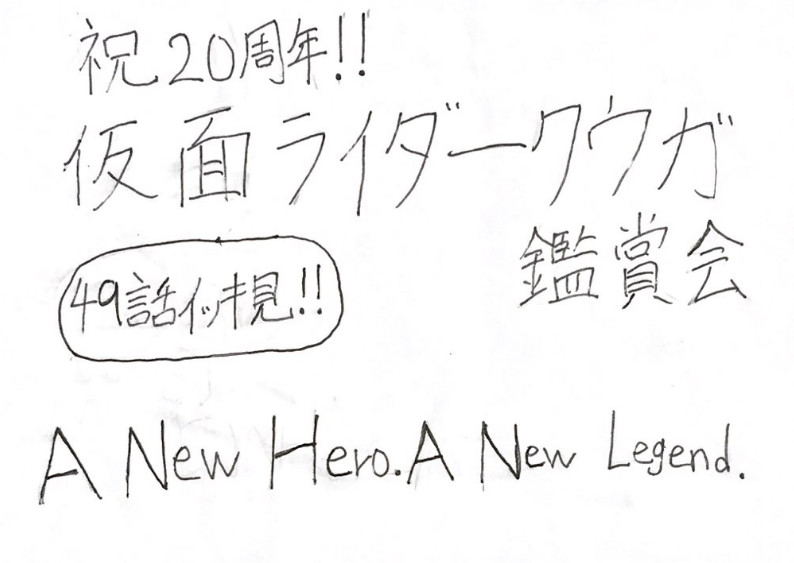 祝20周年!!
仮面ライダークウガ
鑑賞会
49話イッキ見!!
A New Hero. A New Legend.